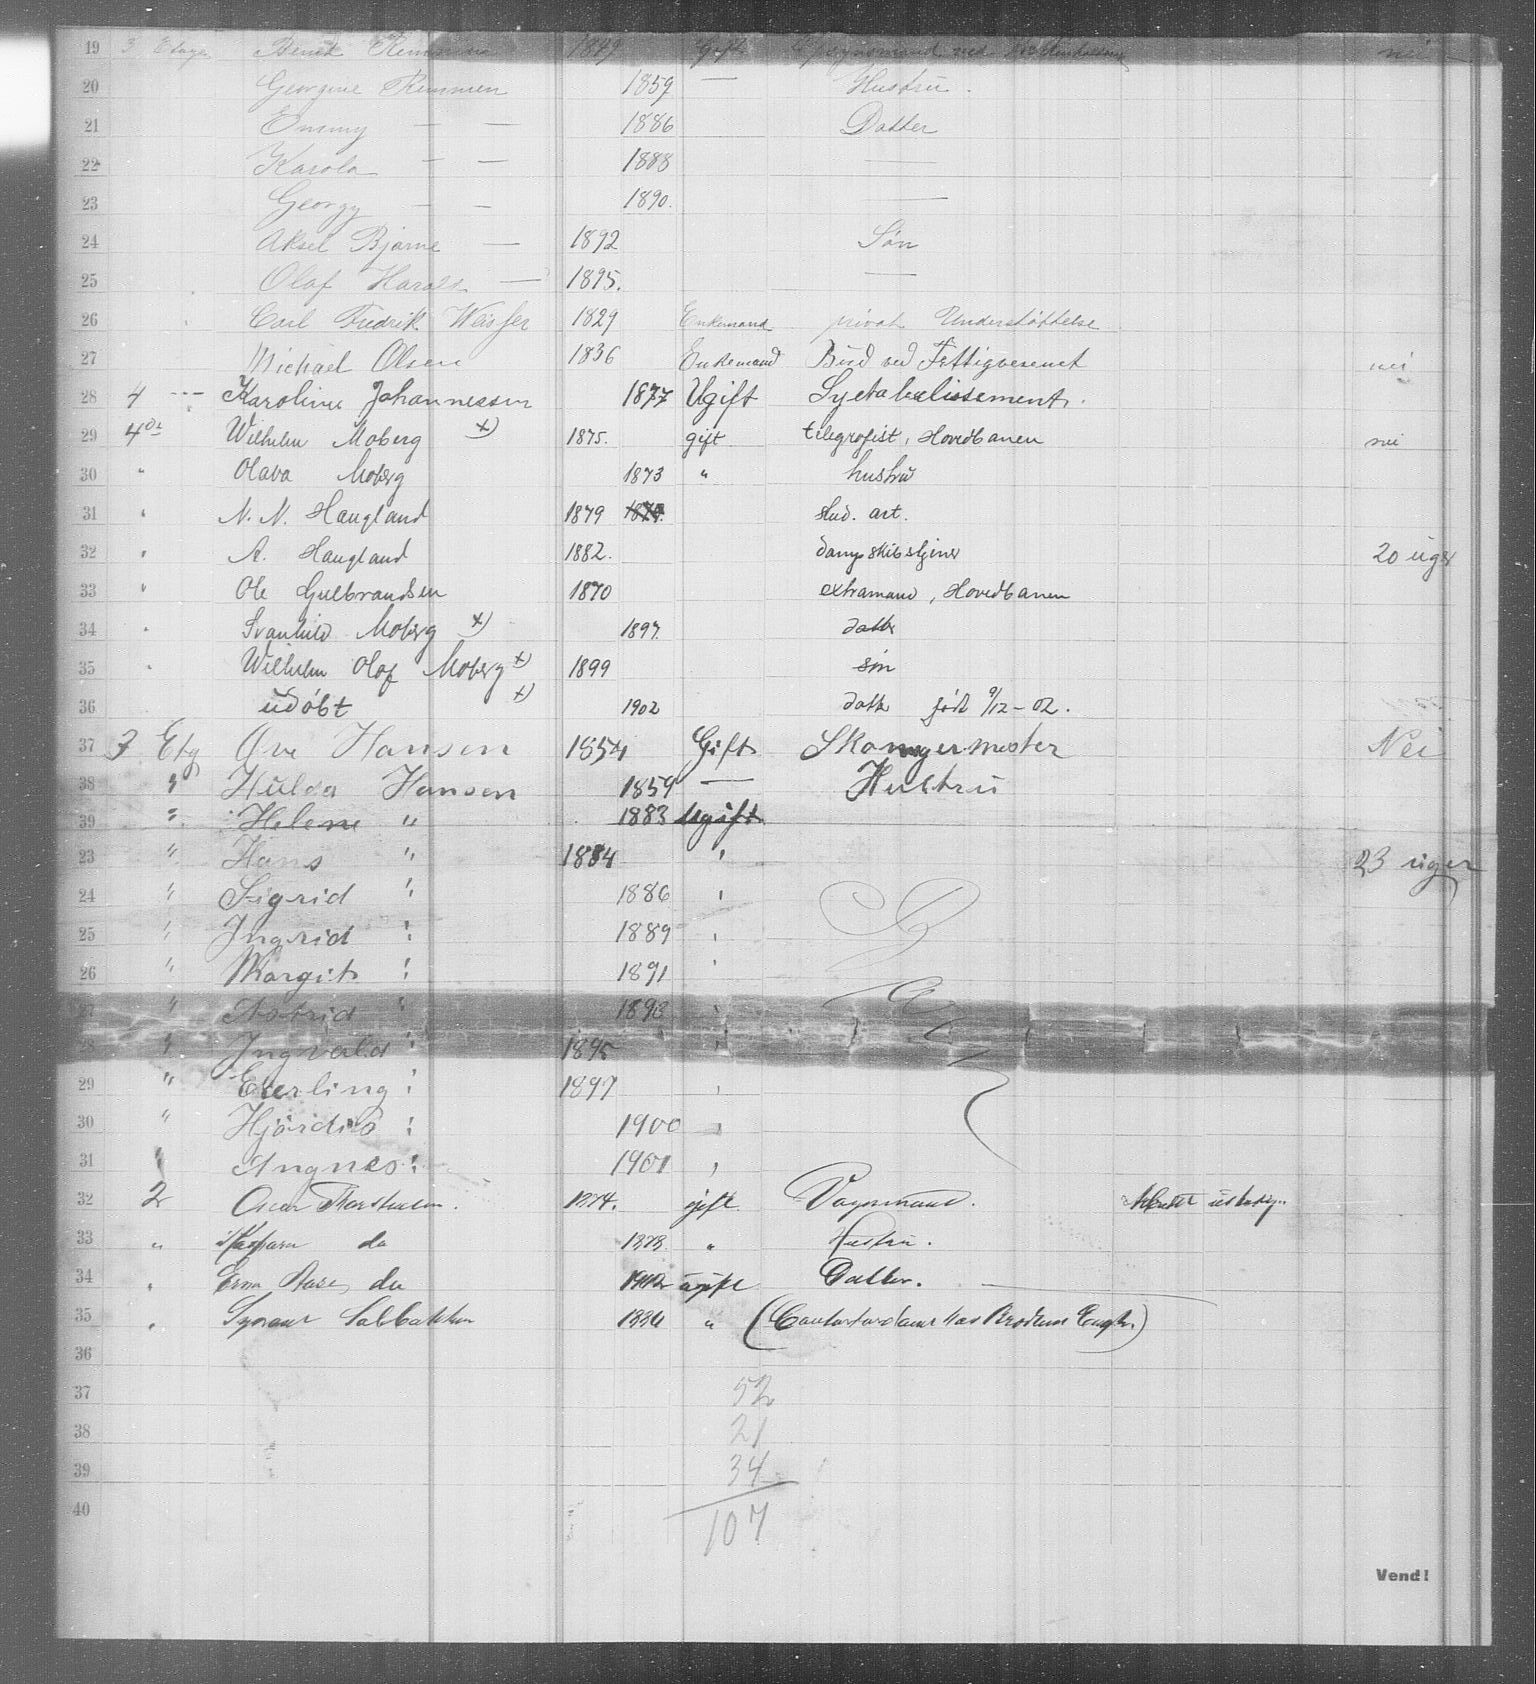 19 3 Etage Bernt Remmen 1849 Gift Opsynsmand ved nei
20 Georgine Remmen 1859 — Hustru.
21 Emmy — — 1886 Datter
22 Karola — — 1888 —
23 Georgy — — 1890. —
24 Aksel Bjarne — 1892 Søn
25 Olaf Harald — 1895. —
26 Carl Fredrik 1829 Enkemand privat Understøttelse
27 Michael Olsen 1836 Enkemand Bud ved Fattigvesenet nei
28 4 --- Karoline Johannessen 1877 Ugift Syetabelissement.
29 4de Wilhelm Moberg x) 1875. gift telegrafist, Hovedbanen nei
30 " Olava Moberg 1873 " hustru
31 " N. N. Haugland 1879 stud. art.
32 " A. Haugland 1882. dampskibstjener 20 uger
33 " Ole Gulbrandsen 1870 extramand, Hovedbanen
34 " Svanhild Moberg x) 1897. datter
35 " Wilhelm Olaf Moberg x) 1899 søn
36 udøbt x) 1902 datt født 9/12-02.
37 3 Etg Ove Hansen 1854 Gift Skomagermester Nei
38 " Hulda Hansen 1859 — Hustru
39 " Helene " 1883 Ugift
23 " Hans " 1884 " 23 uger
24 " Sigrid " 1886 "
25 " Ingrid " 1889 "
26 " Margit " 1891 "
27 " Astrid " 1893 "
28 " Ingvald " 1895 "
29 " Eterling " 1897 "
30 " Hjørdis " 1900 "
31 " Angnes " 1901 "
32 2 Oscar Thorstensen. 1874. gift Vognmand.
33 " do 1878. " Hustru.
34 " Erna Aase do 1902 ugift Datter. —
35 " 1886 "
36
37 52
38 21
39 34
40 107
Vend!